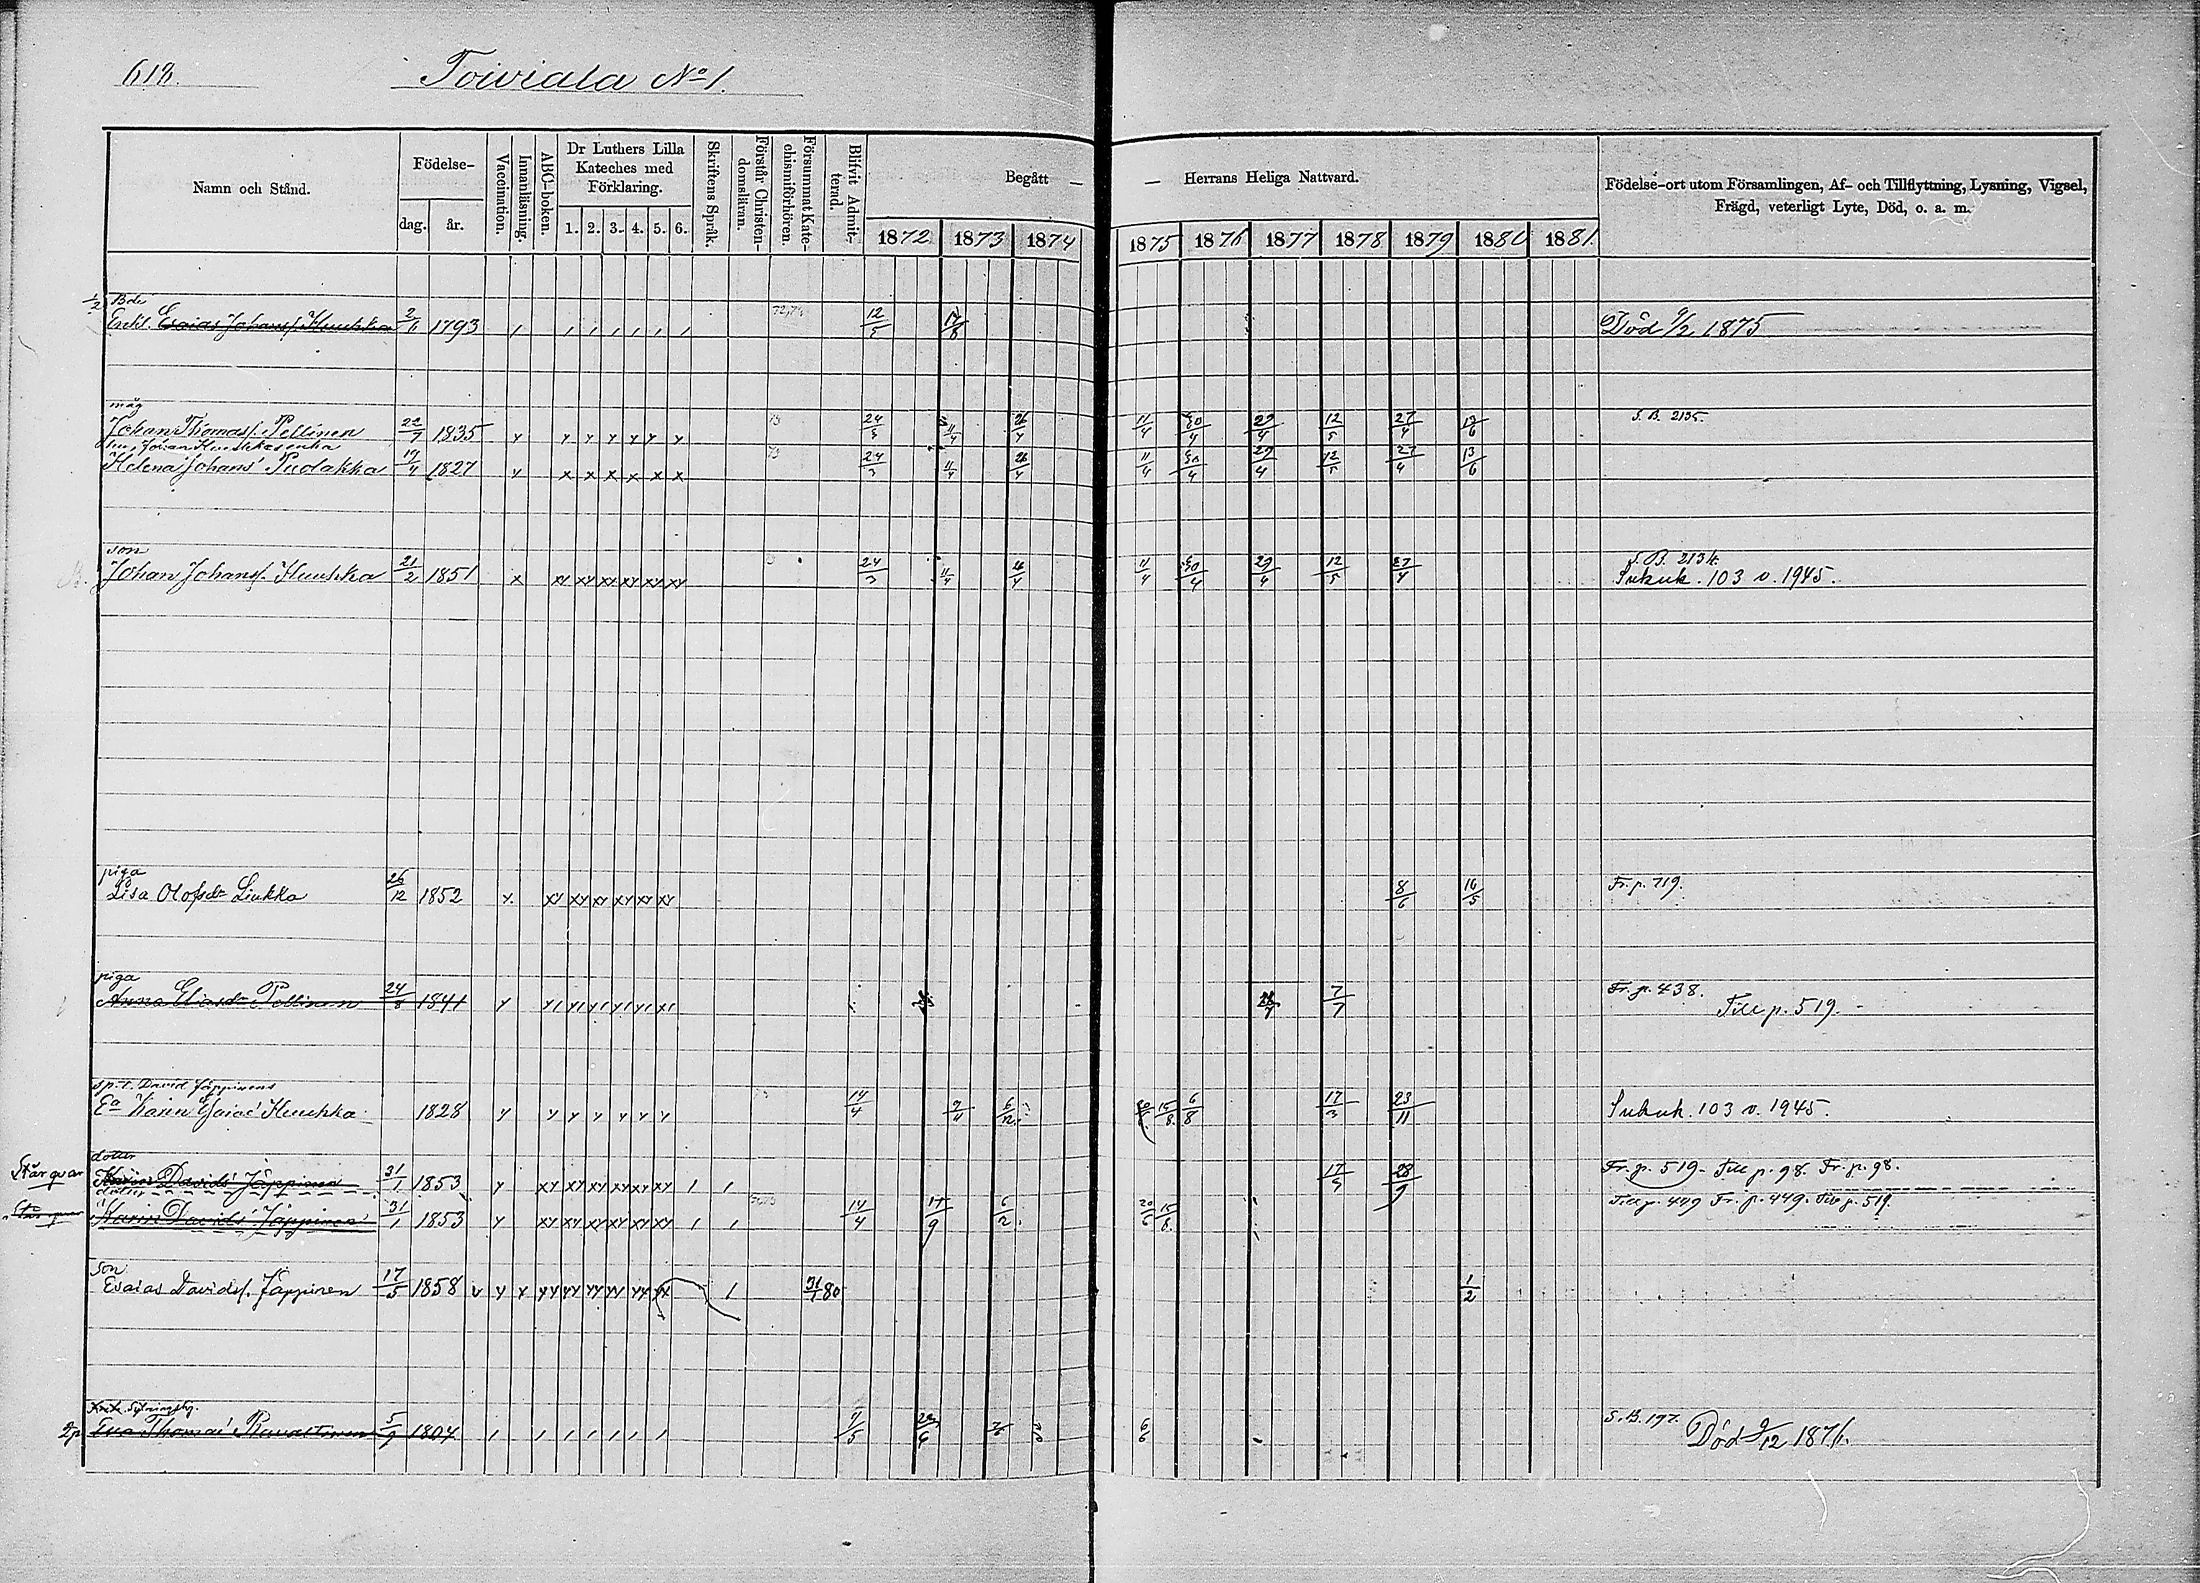 618.
Toiviala No 1.
Namn och Stånd.
Födelse-
dag. år.
Vaccination.
Innanläsning.
ABC-boken.
Dr Luthers Lilla Kateches med Förklaring.
1. 2. 3. 4. 5. 6.
Skriftens Språk.
Förstår Christendomsläran.
Försummat Katechismiförhören.
Blifvit Admitterad.
Begått — — Herrans Heliga Nattvard.
1872 1873 1874 1875 1876 1877 1878 1879 1880 1881.
Födelse-ort utom Församlingen, Af- och Tillflyttning, Lysning, Vigsel,
Frägd, veterligt Lyte, Död, o. a. m.
Bde
Enkl. Esaias Johansf. Huuhka 2/6 1793 12/5 Död 9/2 1875
måg
Johan Thomasf. Pellinen 22/7 1835 24/3 11/4 26/4 11/4 30/4 29/4 12/5 27/4 13/6 S. B. 2135.
Helena Johans' Pudakka 17/4 1827 24/3 11/4 26/4 11/4 30/4 29/4 12/5 27/4 13/6
son
Johan Johansf. Huuhka 21/2 1851 24/3 11/4 26/4 11/4 30/4 29/4 12/5 27/4 S. B. 2134.
Sukuk. 103 v. 1945.
piga
Lisa Olofsdr Liukka 26/12 1852 8/6 16/5 Fr. p. 719.
piga
Anna Eliasdr Pellinen 24/8 1841 7/7 Fr. p. 438.
Till p. 519.
sp.t. David Jäppinens
Ea Karin Esaias' Huuhka 1828 14/4 6/12 15/8 6/8 17/3 23/11 Sukuk. 103 v. 1945.
dotter
Står qvar Karin Davids' Jäppinen 31/1 1853 17/5 28/9 Fr. p. 519. Till p. 98. Fr. p. 98.
dotter
Står qvar Karin Davids' Jäppinen 31/1 1853 14/4 14/9 6/2 20/6 15/8 Till p. 449 Fr. p. 449. Till p. 519.
son
Esaias Davidsf. Jäppinen 17/5 1858 31/1 80 1/2
Eva Thomas' 5/9 1804 6/6 S. B. 197. Död 9/12 1876.